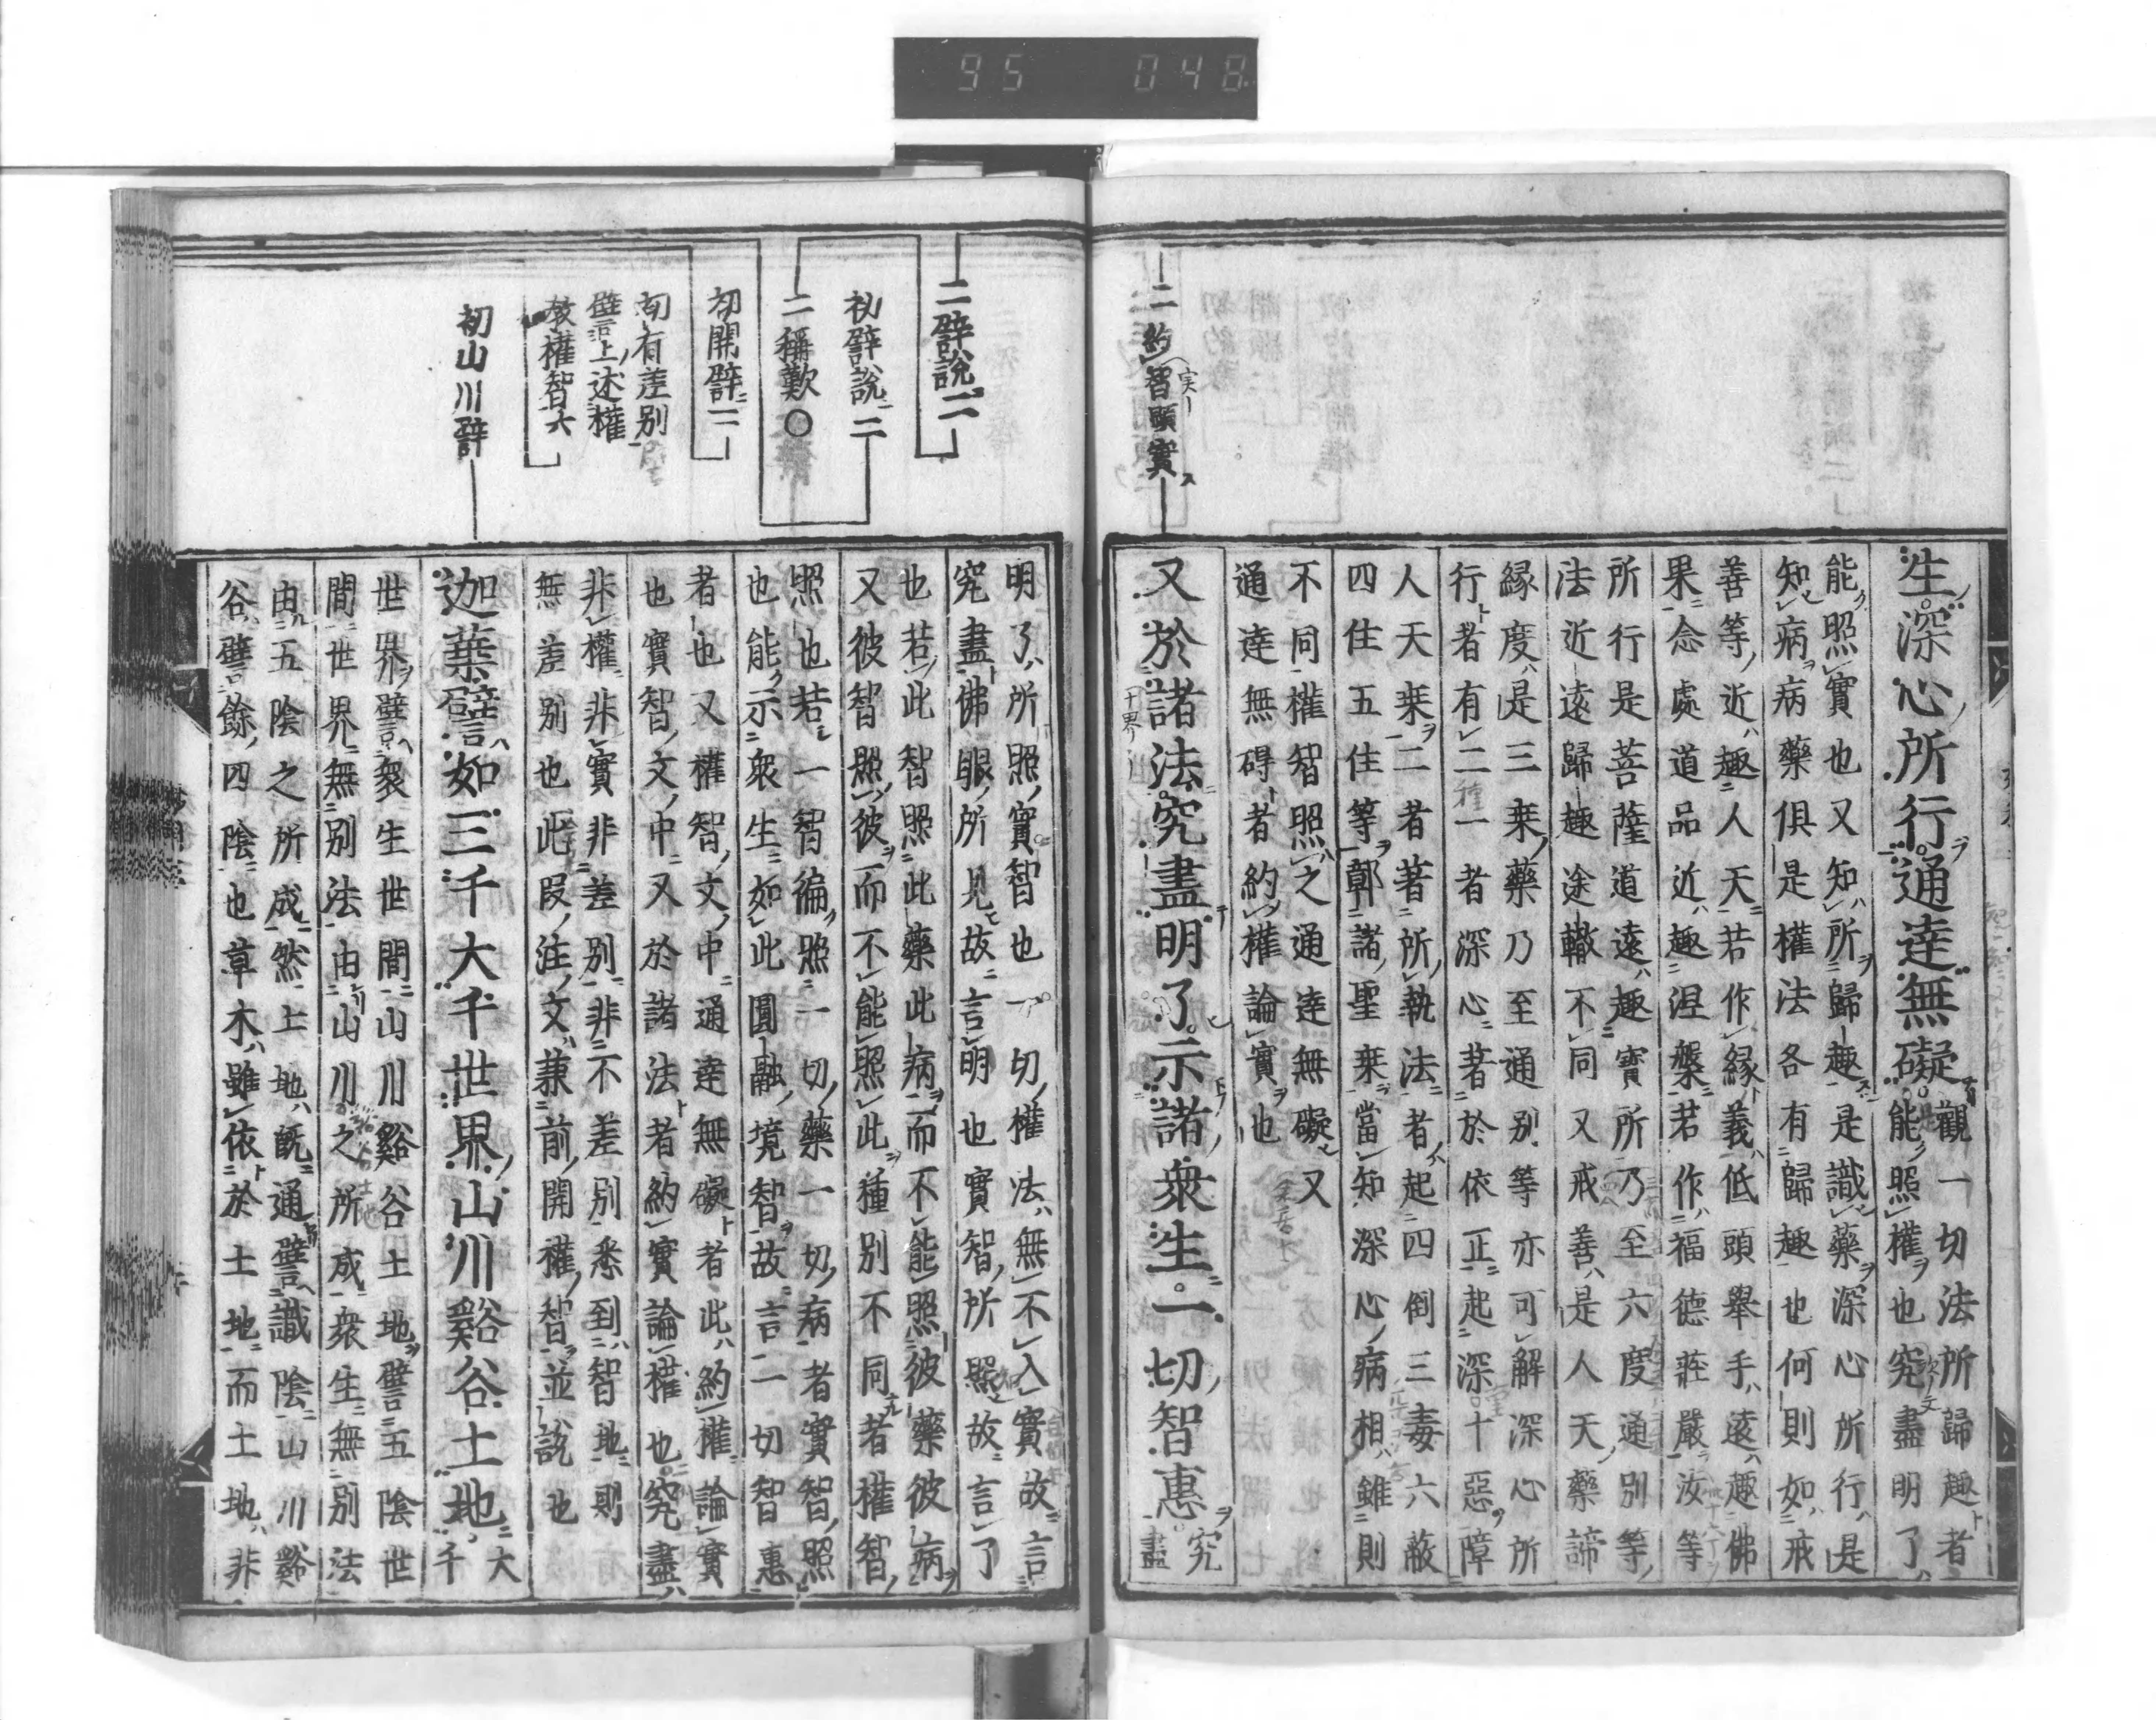 95 048
二約智顯實
生深心所行通達無礙
觀一切法所歸趣者
能照權也究盡明了
能照實也又知所歸趣是識藥深心所行是
知病病藥俱是權法各有歸趣也何則如戒
善等近趣人天若作緣義低頭舉手遠趣佛
果念處道品近趣涅槃若作福德莊嚴汝等
所行是菩薩道遠趣寶所乃至六度通別等
法近遠歸趣途轍不同又戒善是人天藥諦
緣度是三乗藥乃至通別等亦可解深心所
行者有二一者深心著於依正起深十惡障
人天乗二者著所執法者起四倒三毒六蔽
四住五住等鄣諸聖乗當知深心病相雖則
不同權智照之通達無礙又
通達無碍者約權論實也
又於諸法究盡明了示諸衆生一切智惠
究
盡
二譬說二
初譬說二
二稱歎〇
初開譬三
初有差別
譬上述權
教權智六
初山川譬
明了所照實智也一切權法無不入實故言
究盡佛眼所見故言明也實智所照故言了
也若此智照此藥此病而不能照彼藥彼病
又彼智照彼而不能照此種別不同者權智
照也若一智徧照一切藥一切病者實智照
也能示衆生如此圓融境智故言一切智惠
者也又權智文中通達無礙者此約權論實
也實智文中又於諸法者約實論權也究盡
非權非實非差別非不差別悉到智地則
無差別也此叚注文兼前開權智並說也
迦葉譬如三千大千世界山川谿谷土地
大
千
世界譬衆生世間山川谿谷土地譬五陰世
間世界無別法由山川之所成衆生無別法
由五陰之所成然上地既通譬識陰山川谿
谷譬餘四陰也草木雖依於土地而土地非